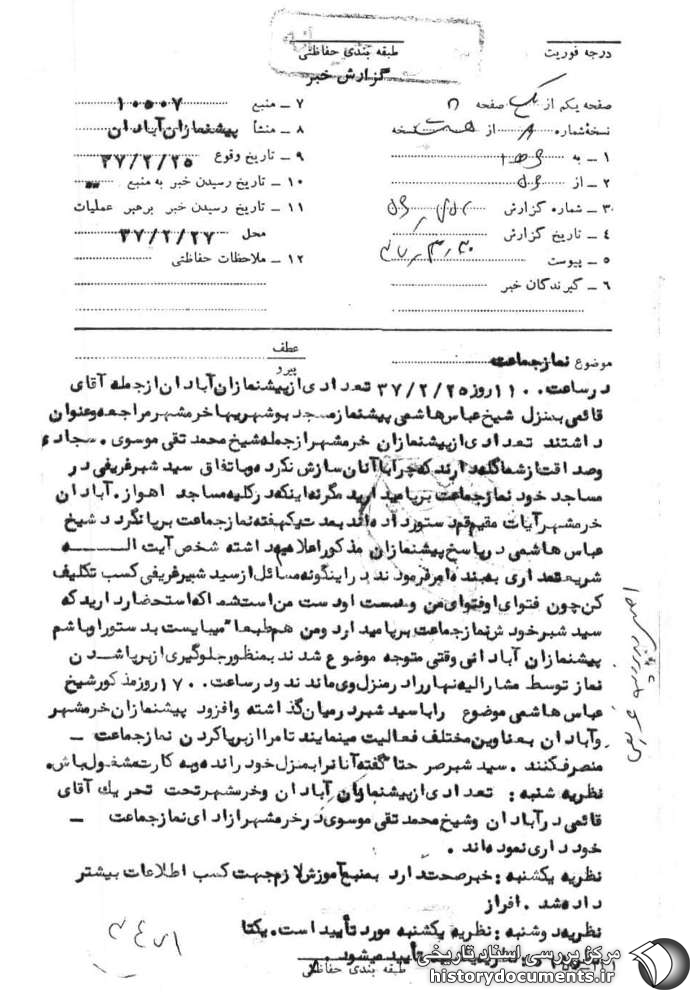 درجه فوریت
طبقه بندی حفاظتی
گزارش خبر
صفحه یکم از یک صفحه
نسخه شماره ۸ از هشت نسخه
۱ ــ به
۲ ــ از
۳ ــ شماره گزارش
٤ ــ تاریخ گزارش
٥ ــ پیوست
٦ ــ گیرندگان خبر
۷ ــ منبع ۱۰۵۰۷
۸ ــ منشأ پیشنمازان آبادان
۹ ــ تاریخ وقوع ۳۷/۲/۲۵
۱۰ ــ تاریخ رسیدن خبر به منبع
۱۱ ــ تاریخ رسیدن خبر برهبر عملیات
محل ۳۷/۲/۲۷
۱۲ ــ ملاحظات حفاظتی
موضوع نماز جماعت
عطف
پیرو
در ساعت ۱۱۰۰ روز ۳۷/۲/۲۵ تعدادی از پیشنمازان آبادان از جمله آقای
قائمی بمنزل شیخ عباس هاشمی پیشنماز مسجد بوشهریها خرمشهر مراجعه و عنوان
داشتند تعدادی از پیشنمازان خرمشهر از جمله شیخ محمد تقی موسوی . سجادی
و صداقت از شما گله دارند که چرا با آنان سازش نکرده و با تفاق سید شبر فریفی در
مساجد خود نماز جماعت برپا میدارید مگر نه اینکه در کلیه مساجد اهواز . آبادان
خرمشهر آیات مقیم قم دستور داده اند بمدت یکهفته نماز جماعت برپا نگردد شیخ
عباس هاشمی در پاسخ پیشنمازان مذکور اعلام داشته شخص آیت اللـــه
شریعتمداری به بنده امر فرمودند در اینگونه مسائل از سید شبر فریفی کسب تکلیف
کن چون فتوای او فتوای من و دست او دست من است شما که استحضار دارید که
سید شبر خودش نماز جماعت برپا میدارد و من هم طبعا" میبایست بدستور او باشم
پیشنمازان آبادانی وقتی متوجه موضوع شدند بمنظور جلوگیری از برپا شدن
نماز توسط مشارالیه نهار را در منزل وی ماندند و در ساعت ۱۷۰۰ روز مذکور شیخ
عباس هاشمی موضوع را با سید شبر در میان گذاشته و افزود پیشنمازان خرمشهر
و آبادان بعناوین مختلف فعالیت مینمایند تا مرا از برپا کردن نماز جماعت ــ
منصرف کنند . سید شبر صراحتا گفته آنانرا بمنزل خود راند و به کارت مشغول باش.
نظریه شنبه : تعدادی از پیشنمازان آبادان و خرمشهر تحت تحریک آقای
قائمی در آبادان و شیخ محمد تقی موسوی در خرمشهر از ادای نماز جماعت ــ
خودداری نموده اند .
نظریه یکشنبه : خبر صحت دارد به منبع آموزش لازم جهت کسب اطلاعات بیشتر
داده شد . افراز
نظریه دوشنبه : نظریه یکشنبه مورد تأیید است. یکتا
تأیید میشود .
طبقه بندی حفاظتی
مرکز بررسی اسناد تاریخی
historydocuments.ir